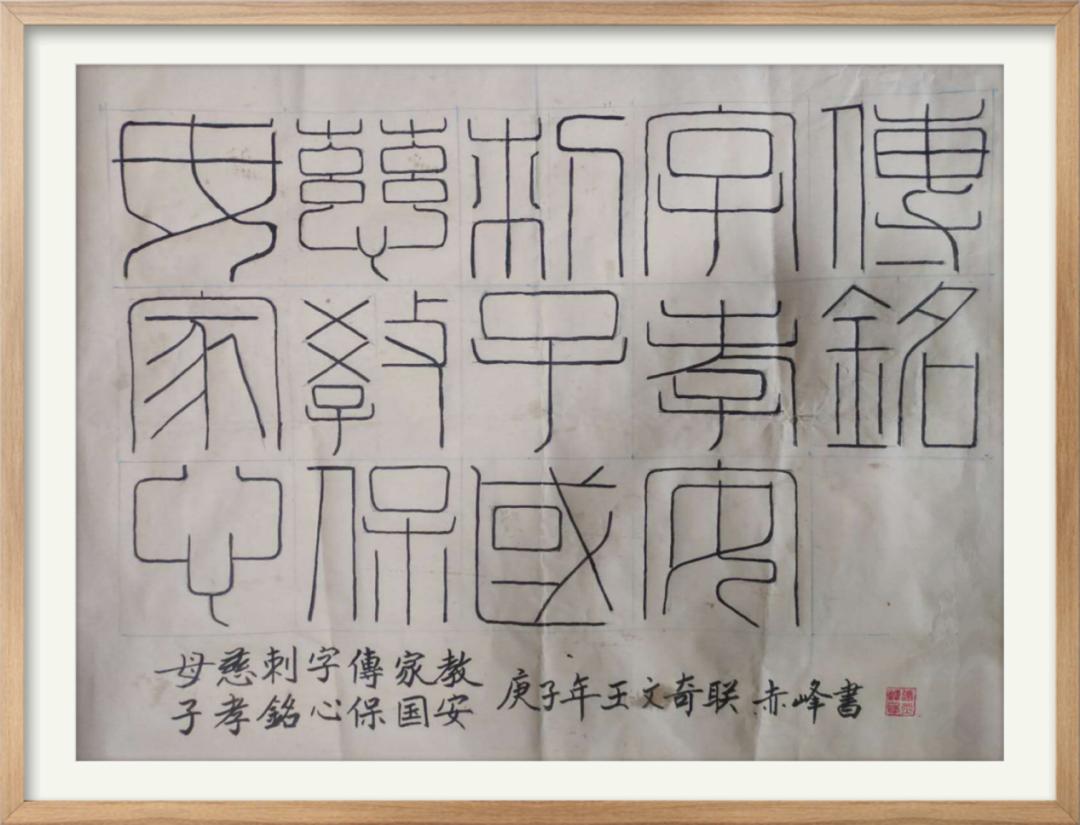 母慈刺字傳
家教子孝銘
心保國安
母慈刺字傳家教
子孝銘心保国安
庚子年王文奇联 赤峰書